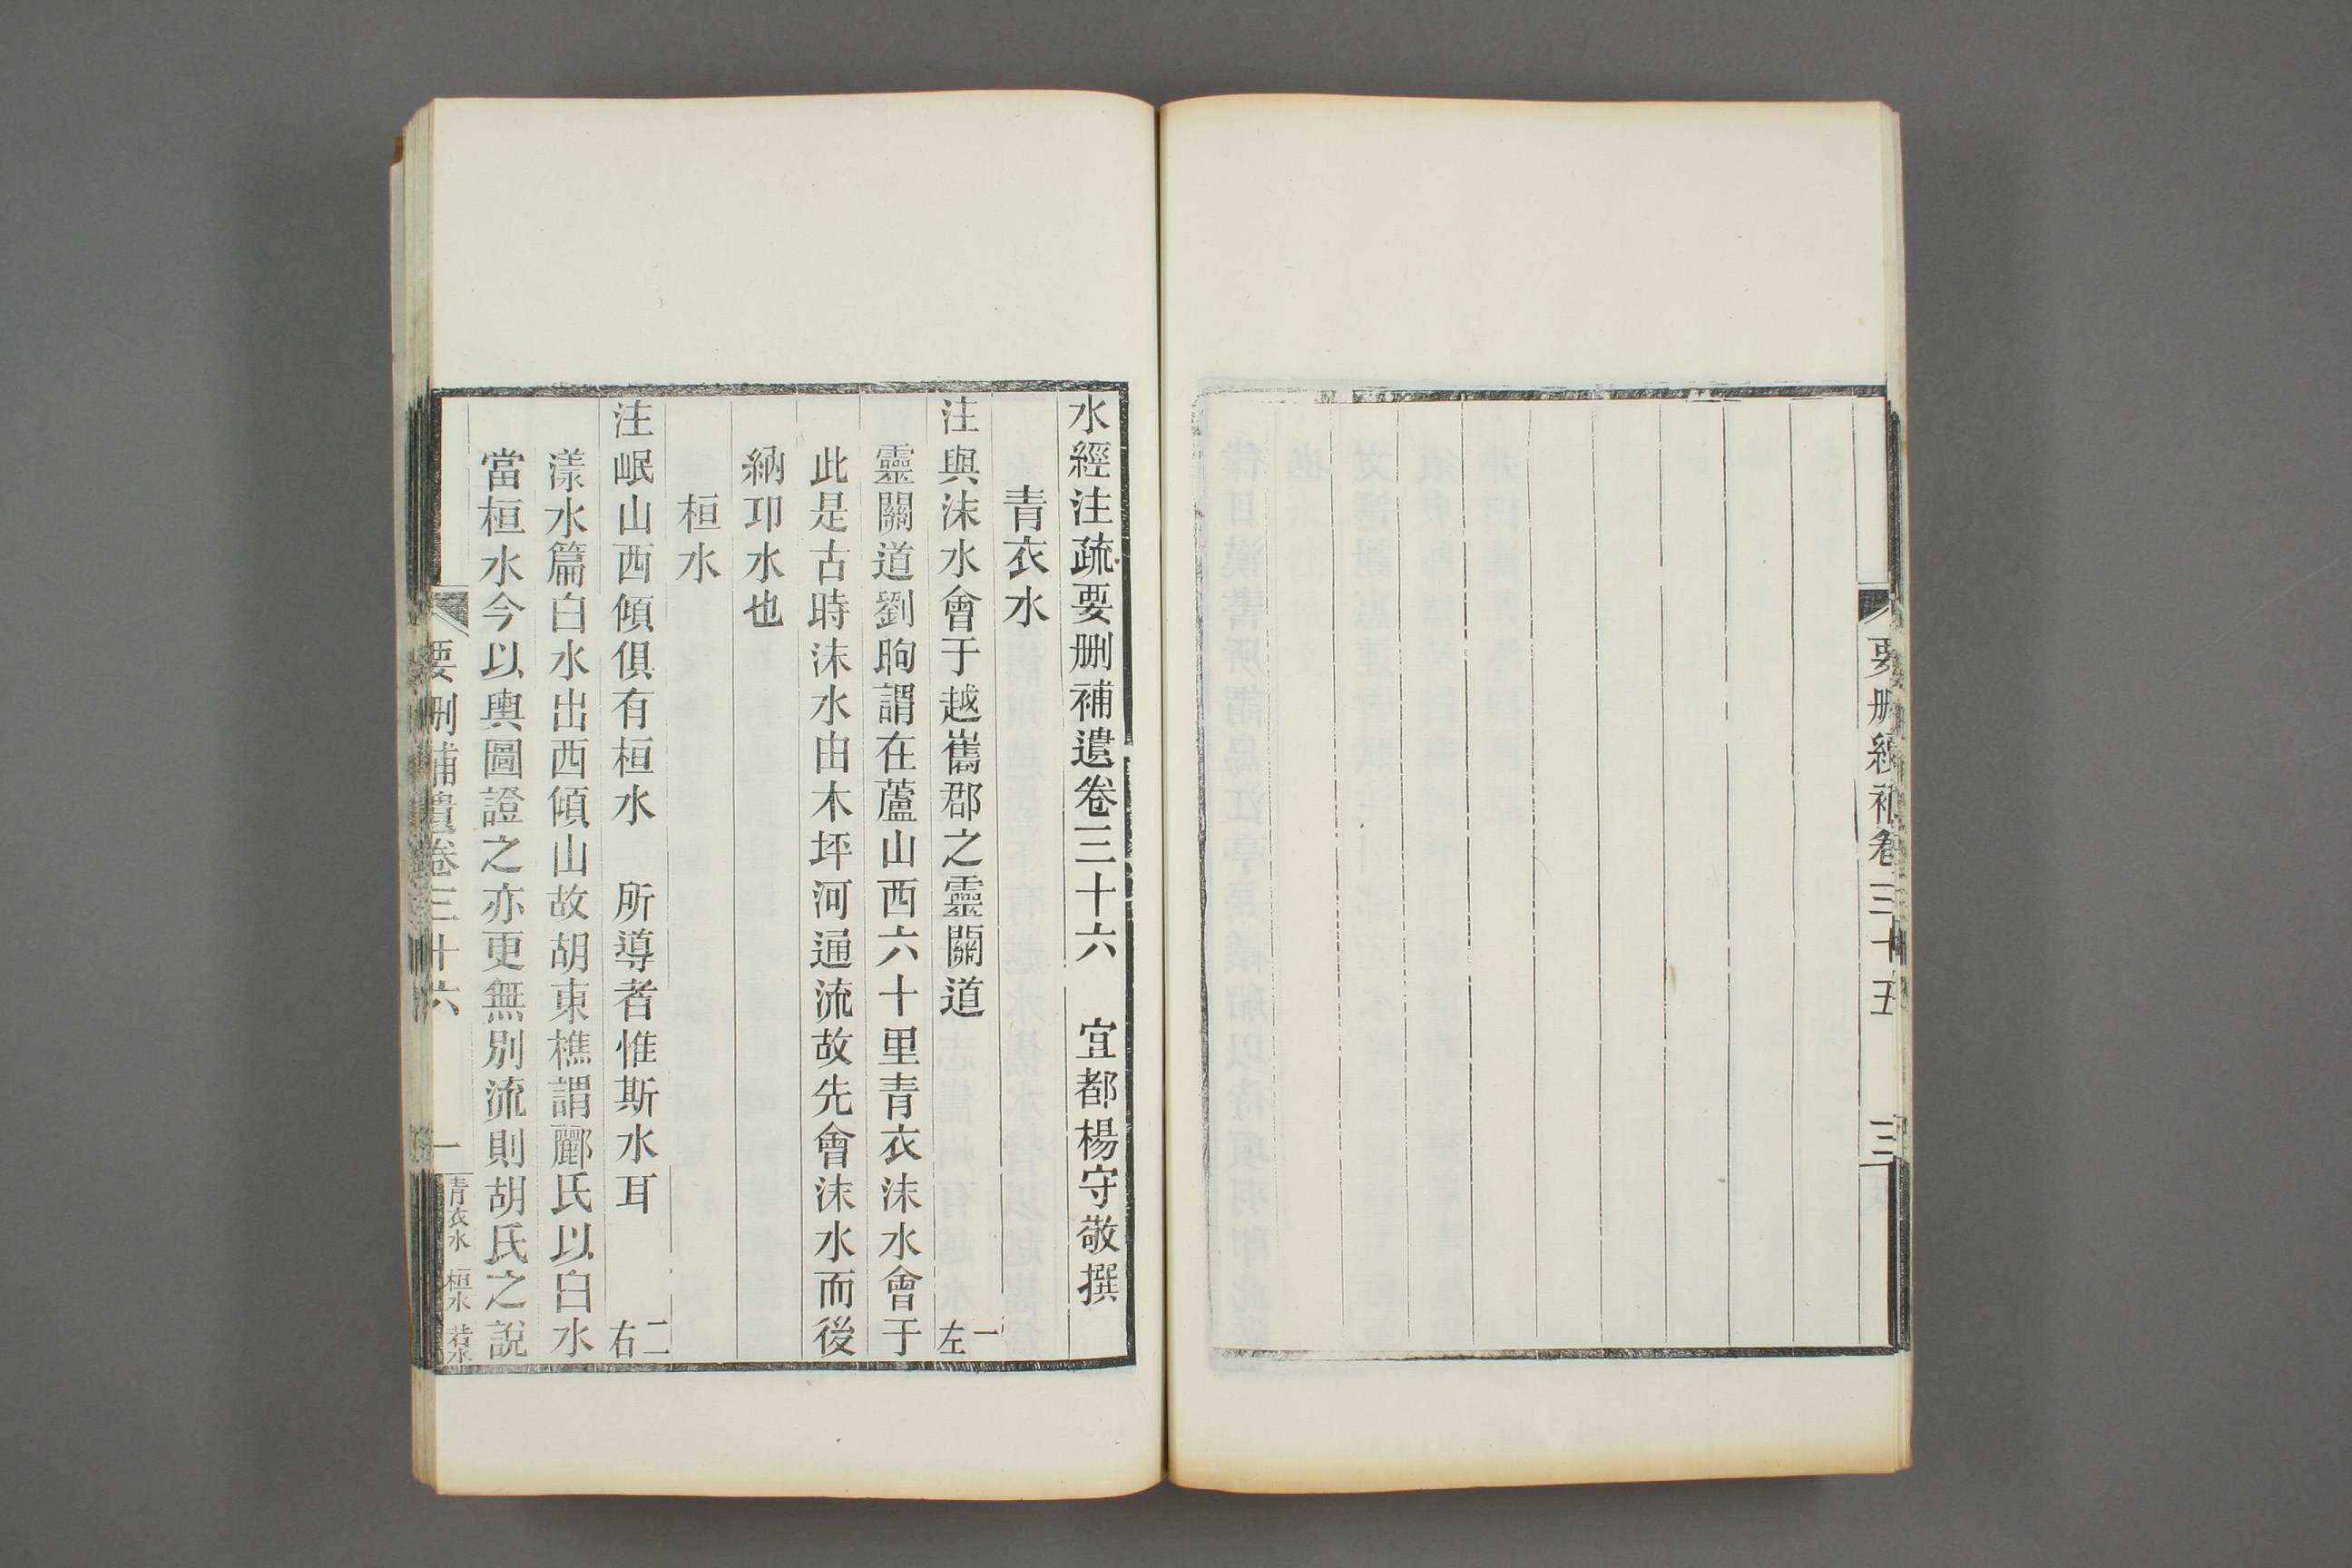 要刪續補卷三十五 三
水經注疏要刪補遺卷三十六 宜都楊守敬撰
青衣水
注與沫水會于越嶲郡之靈關道 一左
靈關道劉昫謂在蘆山西六十里青衣沫水會于
此是古時沫水由木坪河通流故先會沫水而後
納邛水也
桓水
注岷山西傾俱有桓水 所導者惟斯水耳 二右
漾水篇白水出西傾山故胡東樵謂酈氏以白水
當桓水今以輿圖證之亦更無別流則胡氏之說
要刪補遺卷三十六 一 青衣水 桓水 若水